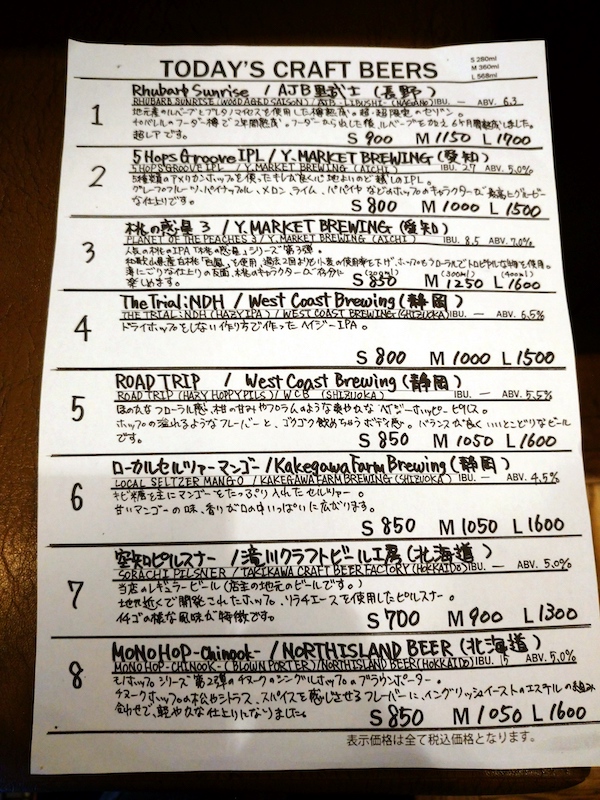 TODAY'S CRAFT BEERS
S 280ml
M 360ml
L 568ml
1
Rhubarb Sunrise / AJB 里武士 (長野)
RHUBARB SUNRISE (WOOD AGED SAISON) / AJB - LIBUSHI - (NAGANO) IBU. — ABV. 6.3
超レアです。
S 900 M 1150 L 1900
2
5 Hops Groove IPL / Y. MARKET BREWING (愛知)
5 HOPS GROOVE IPL / Y. MARKET BREWING (AICHI) IBU. 27 ABV. 5.0%
5種類のアメリカンホップを使ったキレが良く心地よいのど越しのIPL。
グレープフルーツ、パイナップル、メロン、ライム、パパイヤ などのホップのキャラクターが
な仕上りです。
S 800 M 1000 L 1500
3
桃の惑星 3 / Y. MARKET BREWING (愛知)
PLANET OF THE PEACHES 3 / Y. MARKET BREWING (AICHI) IBU. 8.5 ABV. 7.0%
人気の桃のIPA「桃の惑星」シリーズ第3弾。
楽しめます。
(200ml) (300ml) (400ml)
S 850 M 1250 L 1600
4
The Trial: NDH / West Coast Brewing (静岡)
THE TRIAL: NDH (HAZY IPA) / WEST COAST BREWING (SHIZUOKA) IBU. — ABV. 6.5%
ドライホップをしない作り方で作ったヘイジーIPA。
S 800 M 1000 L 1500
5
ROAD TRIP / West Coast Brewing (静岡)
ROAD TRIP (HAZY HOPPY PILS) / W C B (SHIZUOKA) IBU. — ABV. 5.5%
ホップの溢れるようなフレーバーと、ゴクゴク飲めちゃうボディ感。バランスが良くいいとこどりなビール
です。
S 850 M 1050 L 1600
6
ローカルセルツァーマンゴー / Kakegawa Farm Brewing (静岡)
LOCAL SELTZER MANGO / KAKEGAWA FARM BREWING (SHIZUOKA) IBU. — ABV. 4.5%
キビ糖を主にマンゴーをたっぷり入れたセルツァー。
甘いマンゴーの味、香りが口の中いっぱいに広がります。
S 850 M 1050 L 1600
7
空知ピルスナー / 滝川クラフトビール工房 (北海道)
SORACHI PILSNER / TAKIKAWA CRAFT BEER FACTORY (HOKKAIDO) IBU. — ABV. 5.0%
当店のレギュラービール (店主の地元のビールです。)
地元近くで開発されたホップ、リラチエースを使用したピルスナー。
イチゴの様な風味が特徴です。
S 700 M 900 L 1300
8
MONO HOP -Chinook- / NORTH ISLAND BEER (北海道)
MONO HOP - CHINOOK - (BLOWN PORTER) / NORTH ISLAND BEER (HOKKAIDO) IBU. 15 ABV. 5.0%
モノホップシリーズ第2弾のチヌークのシングルホップのブラウンポーター。
チヌークホップの松やシトラス、スパイスを感じさせるフレーバーに、イングリッシュイーストのエステルの組み
合わせで、軽やかな仕上りになりました。
S 850 M 1050 L 1600
表示価格は全て税込価格となります。